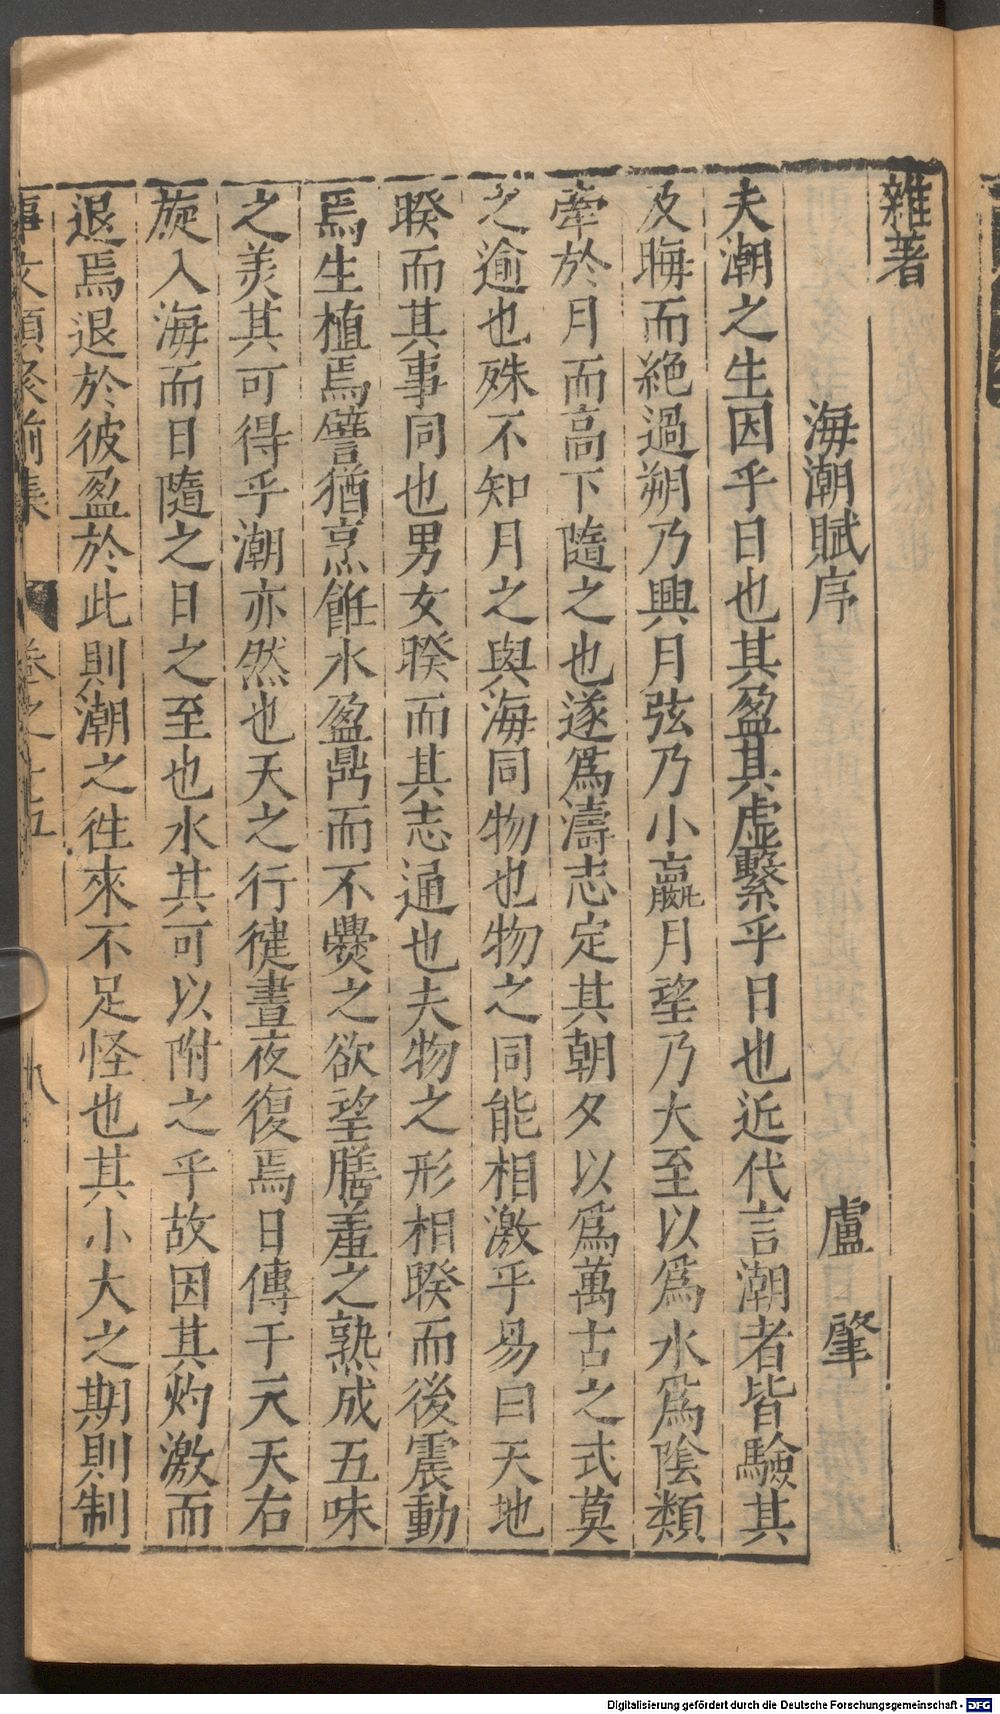 雜著
海潮賦序 盧肇
夫潮之生因乎日也其盈其虛繫乎日也近代言潮者皆驗其
及晦而絶過朔乃興月弦乃小嬴月望乃大至以爲水爲陰類
牽於月而高下隨之也遂爲濤志定其朝夕以爲萬古之式莫
之逾也殊不知月之與海同物也物之同能相激乎易曰天地
睽而其事同也男女睽而其志通也夫物之形相睽而後震動
焉生植焉譬猶烹飪水盈鼎而不爨之欲望膳羞之熟成五味
之羙其可得乎潮亦然也天之行健晝夜復焉日傳于天天右
旋入海而日隨之日之至也水其可以附之乎故因其灼激而
退焉退於彼盈於此則潮之徃來不足怪也其小大之期則制
事文類聚前集 卷之十五 九
Digitalisierung gefördert durch die Deutsche Forschungsgemeinschaft - DFG